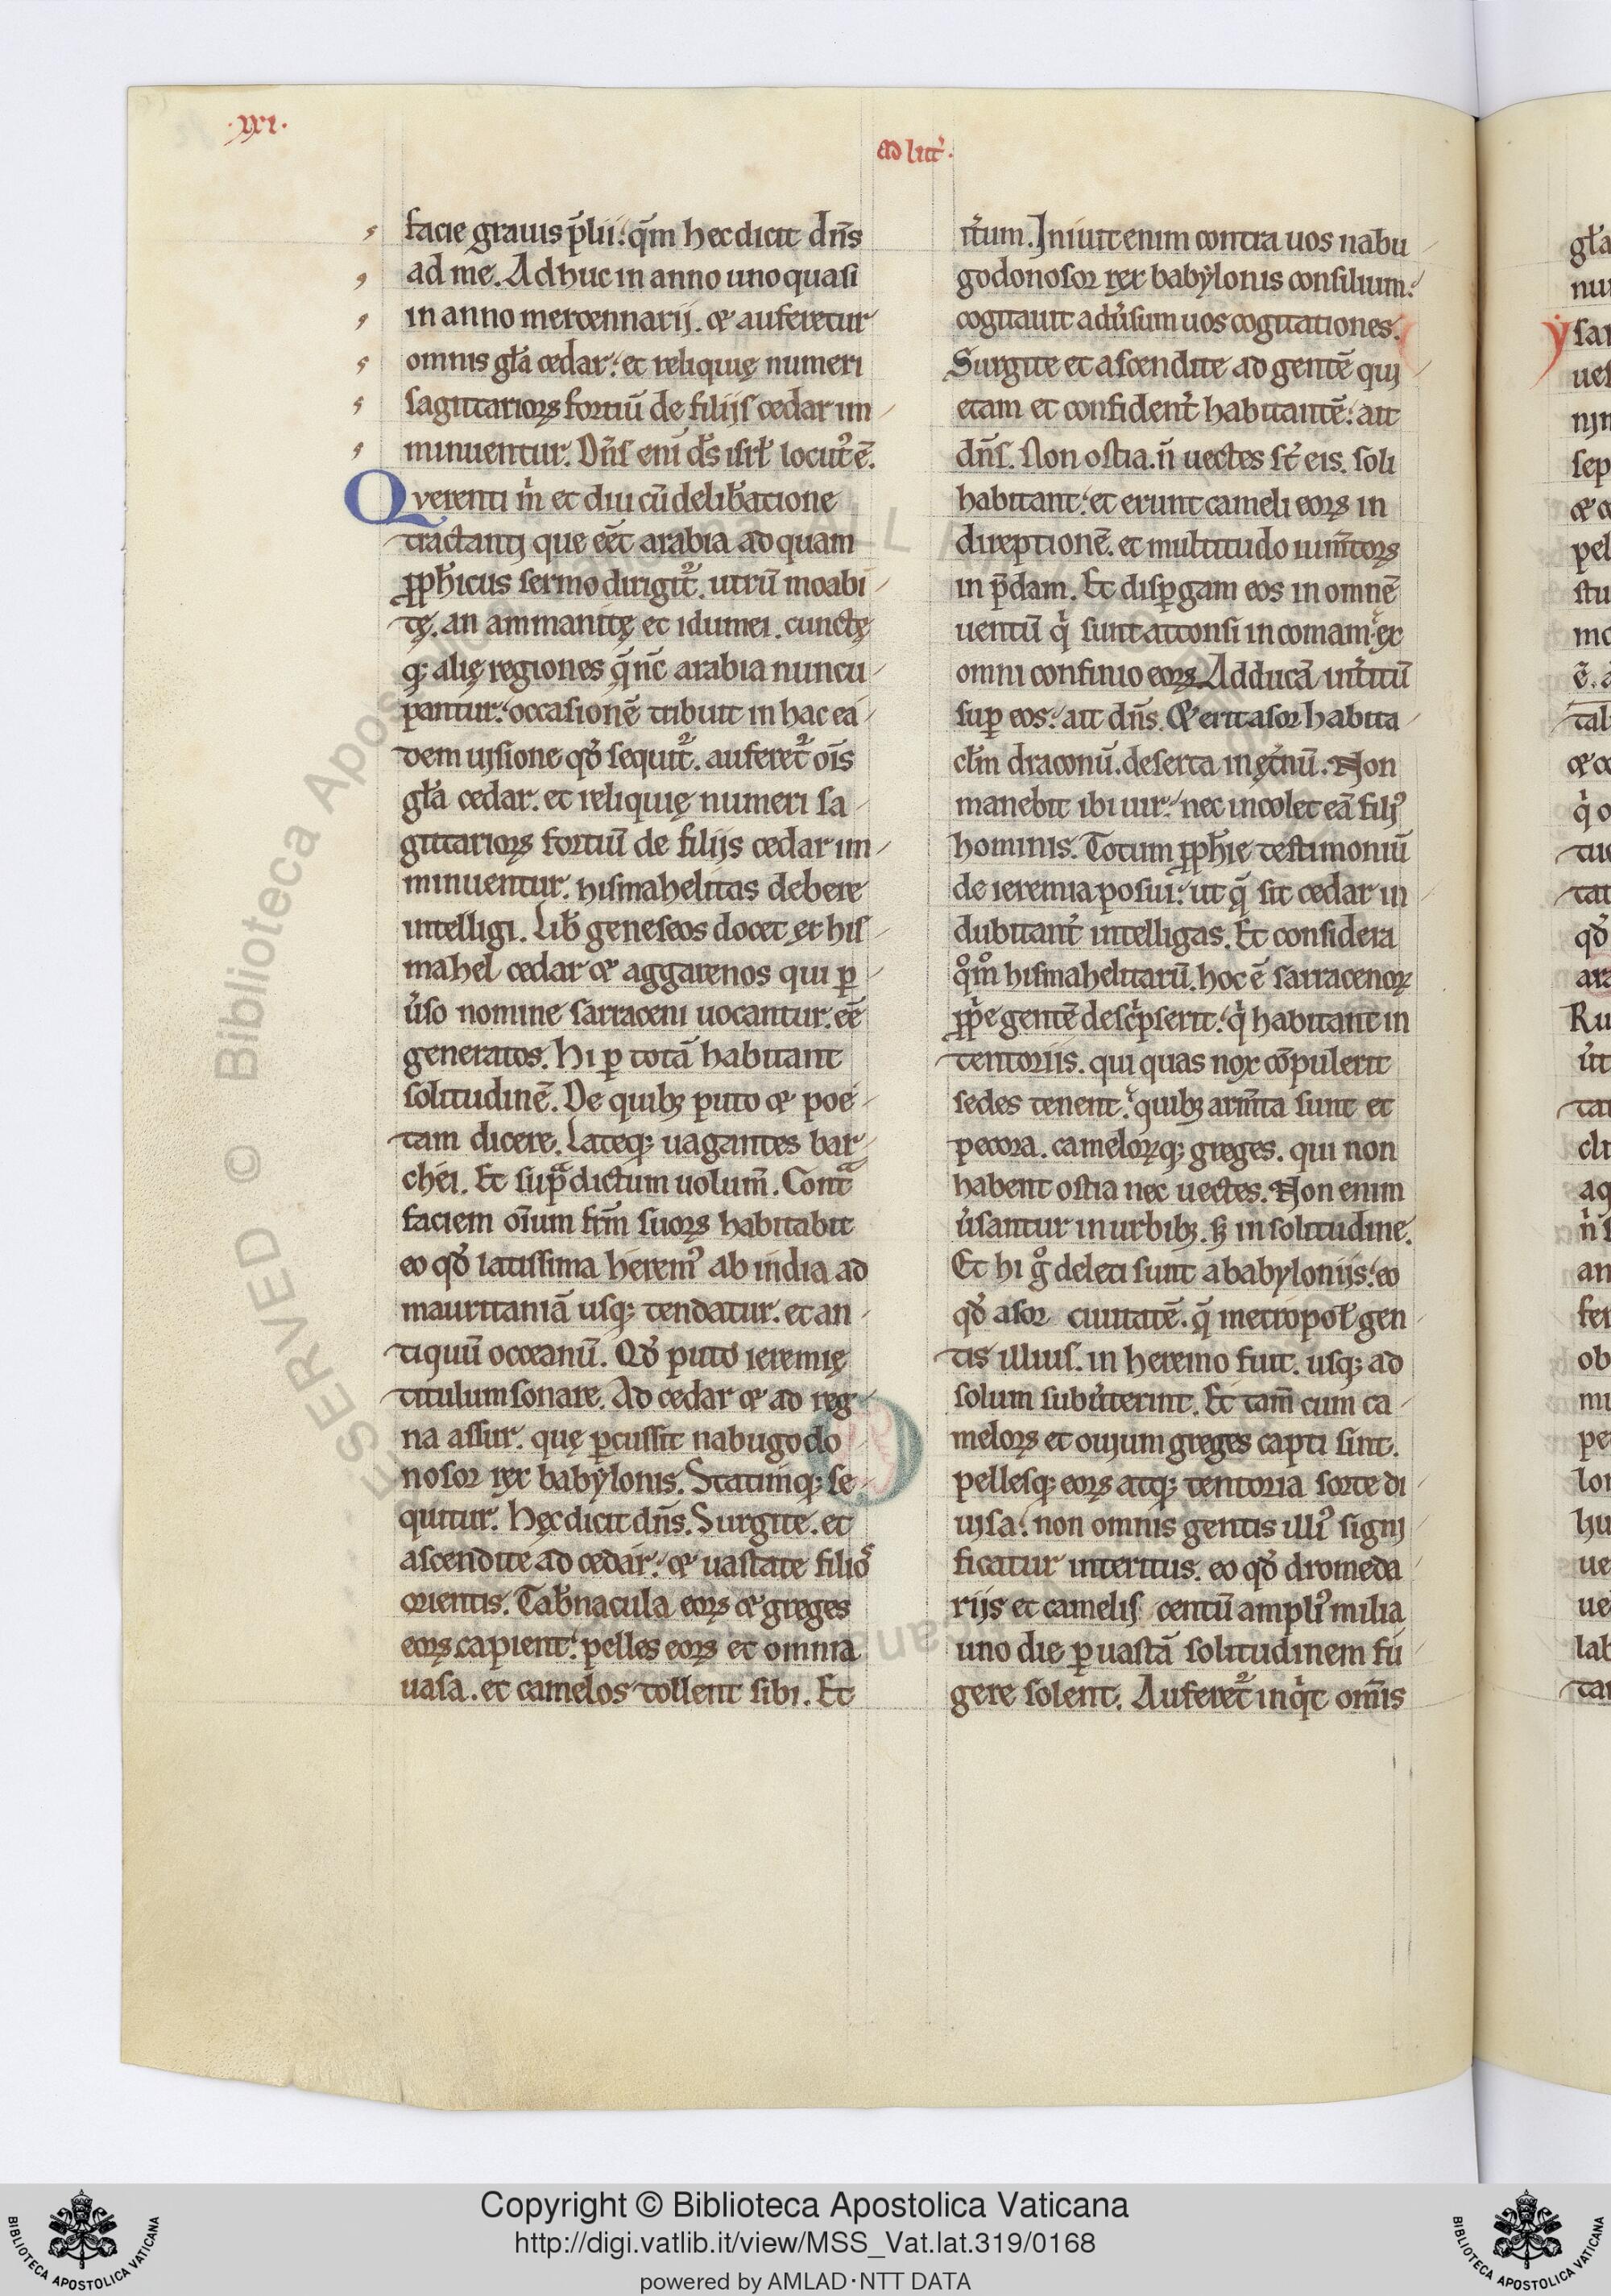 .xxi.
ad litt᷑.
facie grauis p̄lii: qm̄ hec dicit dn̄s
ad me. Adhuc in anno uno quasi
in anno mercennarij. & auferetur
omnis gła cedar: et reliquię numeri
sagittarioꝝ fortiū de filijs cedar im
minuentur. Dn̄s eni d̄s isrł locut᷒ ē.
Qverenti m̓ et diu cū delib̄atione
tractanti que eēt arabia ad quam
ꝓph̓icus sermo dirigit᷑. utrū moabi
tę. an ammanitę et idumei. cunctę
q; alię regiones q̄ nc̄ arabia nuncu
pantur: occasionē tribuit in hac ea
dem uisione qd̓ sequit᷑. auferet᷑ oīs
gła cedar. et reliquię numeri sa
gittarioꝝ fortiū de filijs cedar im
minuentur. hismahelitas debere
intelligi. Lib̄ geneseos docet ex his
mahel cedar & aggarenos qui ꝑ
u̓so nomine sarraceni uocantur. eē
generatos. Hi ꝑ totā habitant
solitudinē. De quibꝫ puto & poe
tam dicere. Lateq; uagantes bar
chei. Et sup̲ᵃdictum uolum̄. Contᵃ
faciem oīum fr̄m suoꝝ habitabit
eo qd̓ latissima herem᷒ ab india ad
mauritaniā usq; tendatur. et an
tiquū occeanū. Qd̓ puto ieremię
titulum sonare. Ad cedar & ad reg
na assur. quę ꝑcussit nabugodo
nosor rex babẏlonis. Statimq; se
quitur. Hęc dicit dn̄s. Surgite. et
ascendite ad cedar: & uastate filioˢ
orientis. Tab̄nacula eoꝝ & greges
eoꝝ capient: pelles eoꝝ et omnia
uasa. et camelos tollent sibi. Et
it̓um. Iniuit enim contra uos nabu
godonosor rex babẏlonis consilium:
cogitauit adu̓sum uos cogitationes.
Surgite et ascendite ad gentē qui
etam et confident̓ habitantē: ait
dn̄s. Non ostia. n̄ uectes st̄ eis. soli
habitant: et erunt cameli eoꝝ in
direptionē. et multitudo ium̄toꝝ
in p̄dam. Et disꝑgam eos in omnē
uentū qͥ sunt attonsi in comam: ex
omni confinio eoꝝ. Adducā int̓itū
suꝑ eos: ait dn̄s. & erit asor habita
cłm draconū. deserta in ęt̓nū. Non
manebit ibi uir: nec incolet eā fili᷒
hominis. Totum ꝓph̓ie testimoniū
de ieremia posui: ut q̄ sit cedar in
dubitant̓ intelligas. Et considera
qͦmͦ hismahelitarū. hoc ē sarracenoꝝ
ꝓpͥe gentē descͥpserit: qͥ habitant in
tentoriis. qui quas nox cōpulerit
sedes tenent: quibꝫ arm̄ta sunt et
pecora. cameloꝝq; greges. qui non
habent ostia nec uectes. Non enim
u̓santur in urbibꝫ. sꝫ in solitudine.
Et hi gͦ deleti sunt a babyloniis: eo
qd̓ asor ciuitatē. q̄ metropoł gen
tis illius. in heremo fuit. usq; ad
solum subu̓terint. Et tam̄ cum ca
meloꝝ et ouium greges capti sint.
pellesq; eoꝝ atq; tentoria sorte di
uisa: non omnis gentis illi᷒ signi
ficatur interitus. eo qd̓ dromeda
rijs et camelis centū ampli᷒ milia
uno die ꝑ uastā solitudinem fu
gere solent. Auferet᷑ inqͥt om̄is
Copyright © Biblioteca Apostolica Vaticana
http://digi.vatlib.it/view/MSS_Vat.lat.319/0168
powered by AMLAD·NTT DATA
BIBLIOTECA APOSTOLICA VATICANA
BIBLIOTECA APOSTOLICA VATICANA